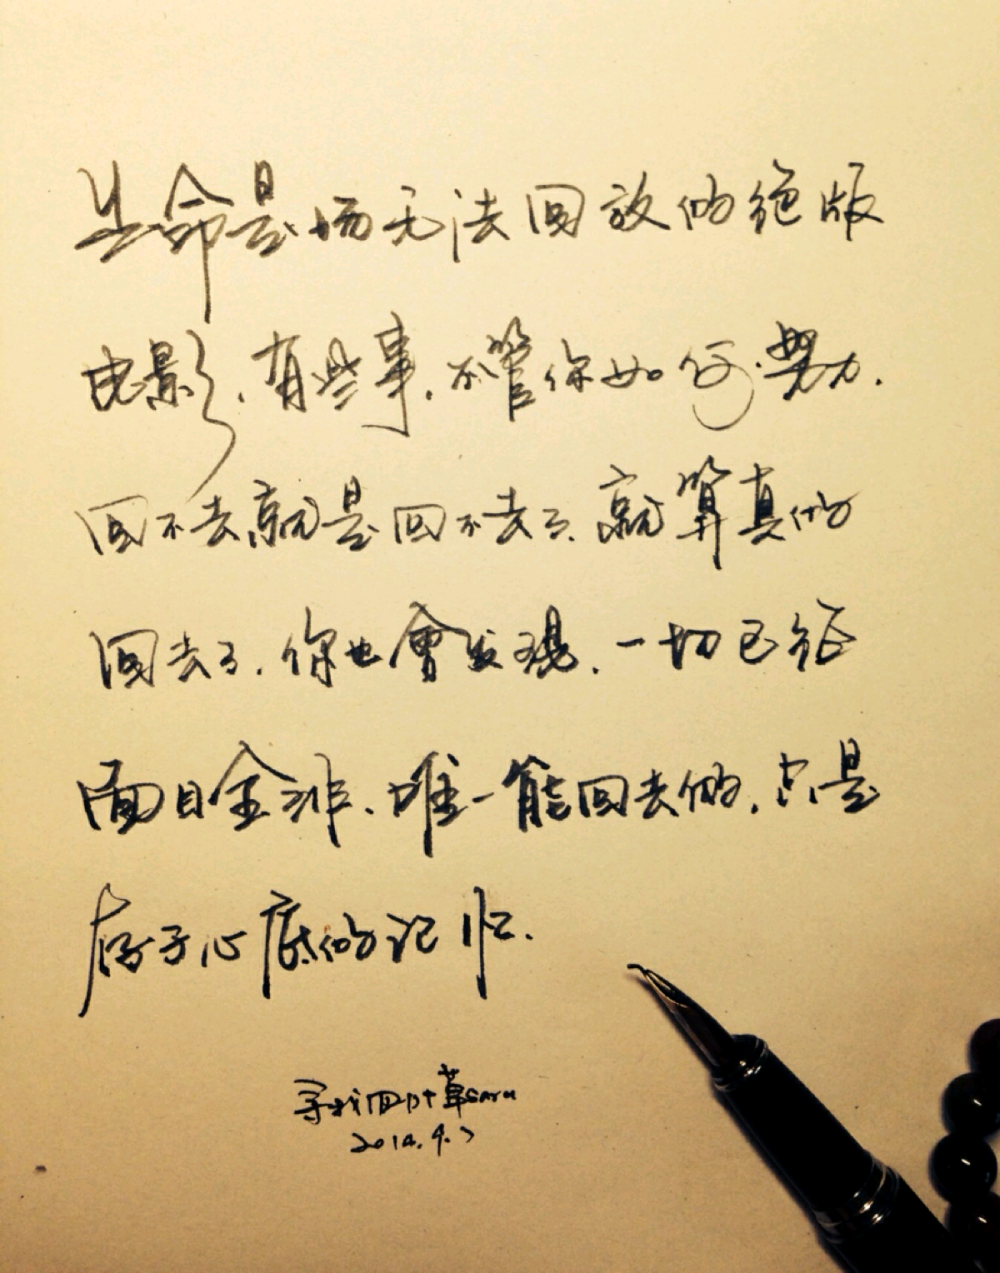 生命是场无法回放的绝版
电影,有些事,不管你如何努力.
回不去就是回不去了,就算真的
回去了,你也會发现,一切已经
面目全非,唯一能回去的,只是
存于心底的记忆.
寻找回叶草
2014.9.7